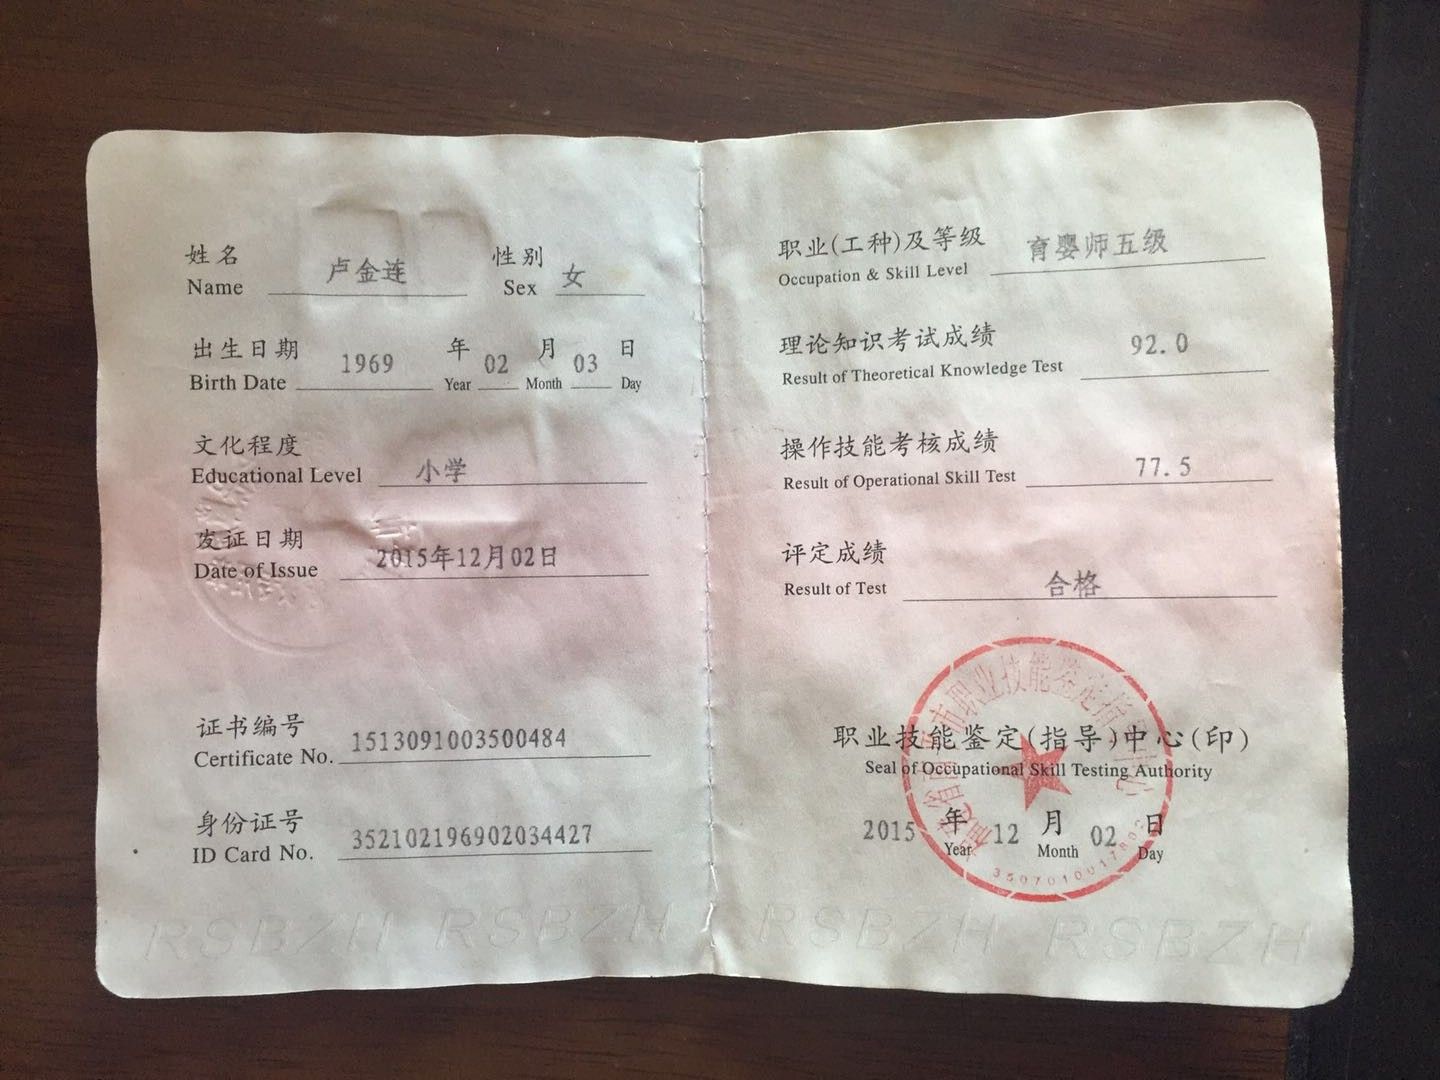 姓名 卢金连 性别 女
Name Sex
出生日期 1969 年 02 月 03 日
Birth Date Year Month Day
文化程度
Educational Level 小学
发证日期 2015年12月02日
Date of Issue
证书编号
Certificate No. 1513091003500484
身份证号
ID Card No. 352102196902034427
RSBZH RSBZH
职业(工种)及等级 育婴师五级
Occupation & Skill Level
理论知识考试成绩 92.0
Result of Theoretical Knowledge Test
操作技能考核成绩 77.5
Result of Operational Skill Test
评定成绩
Result of Test 合格
市职业技能鉴定指导中心
职业技能鉴定(指导)中心(印)
Seal of Occupational Skill Testing Authority
2015 年 12 月 02 日
Year Month Day
RSBZH RSBZH